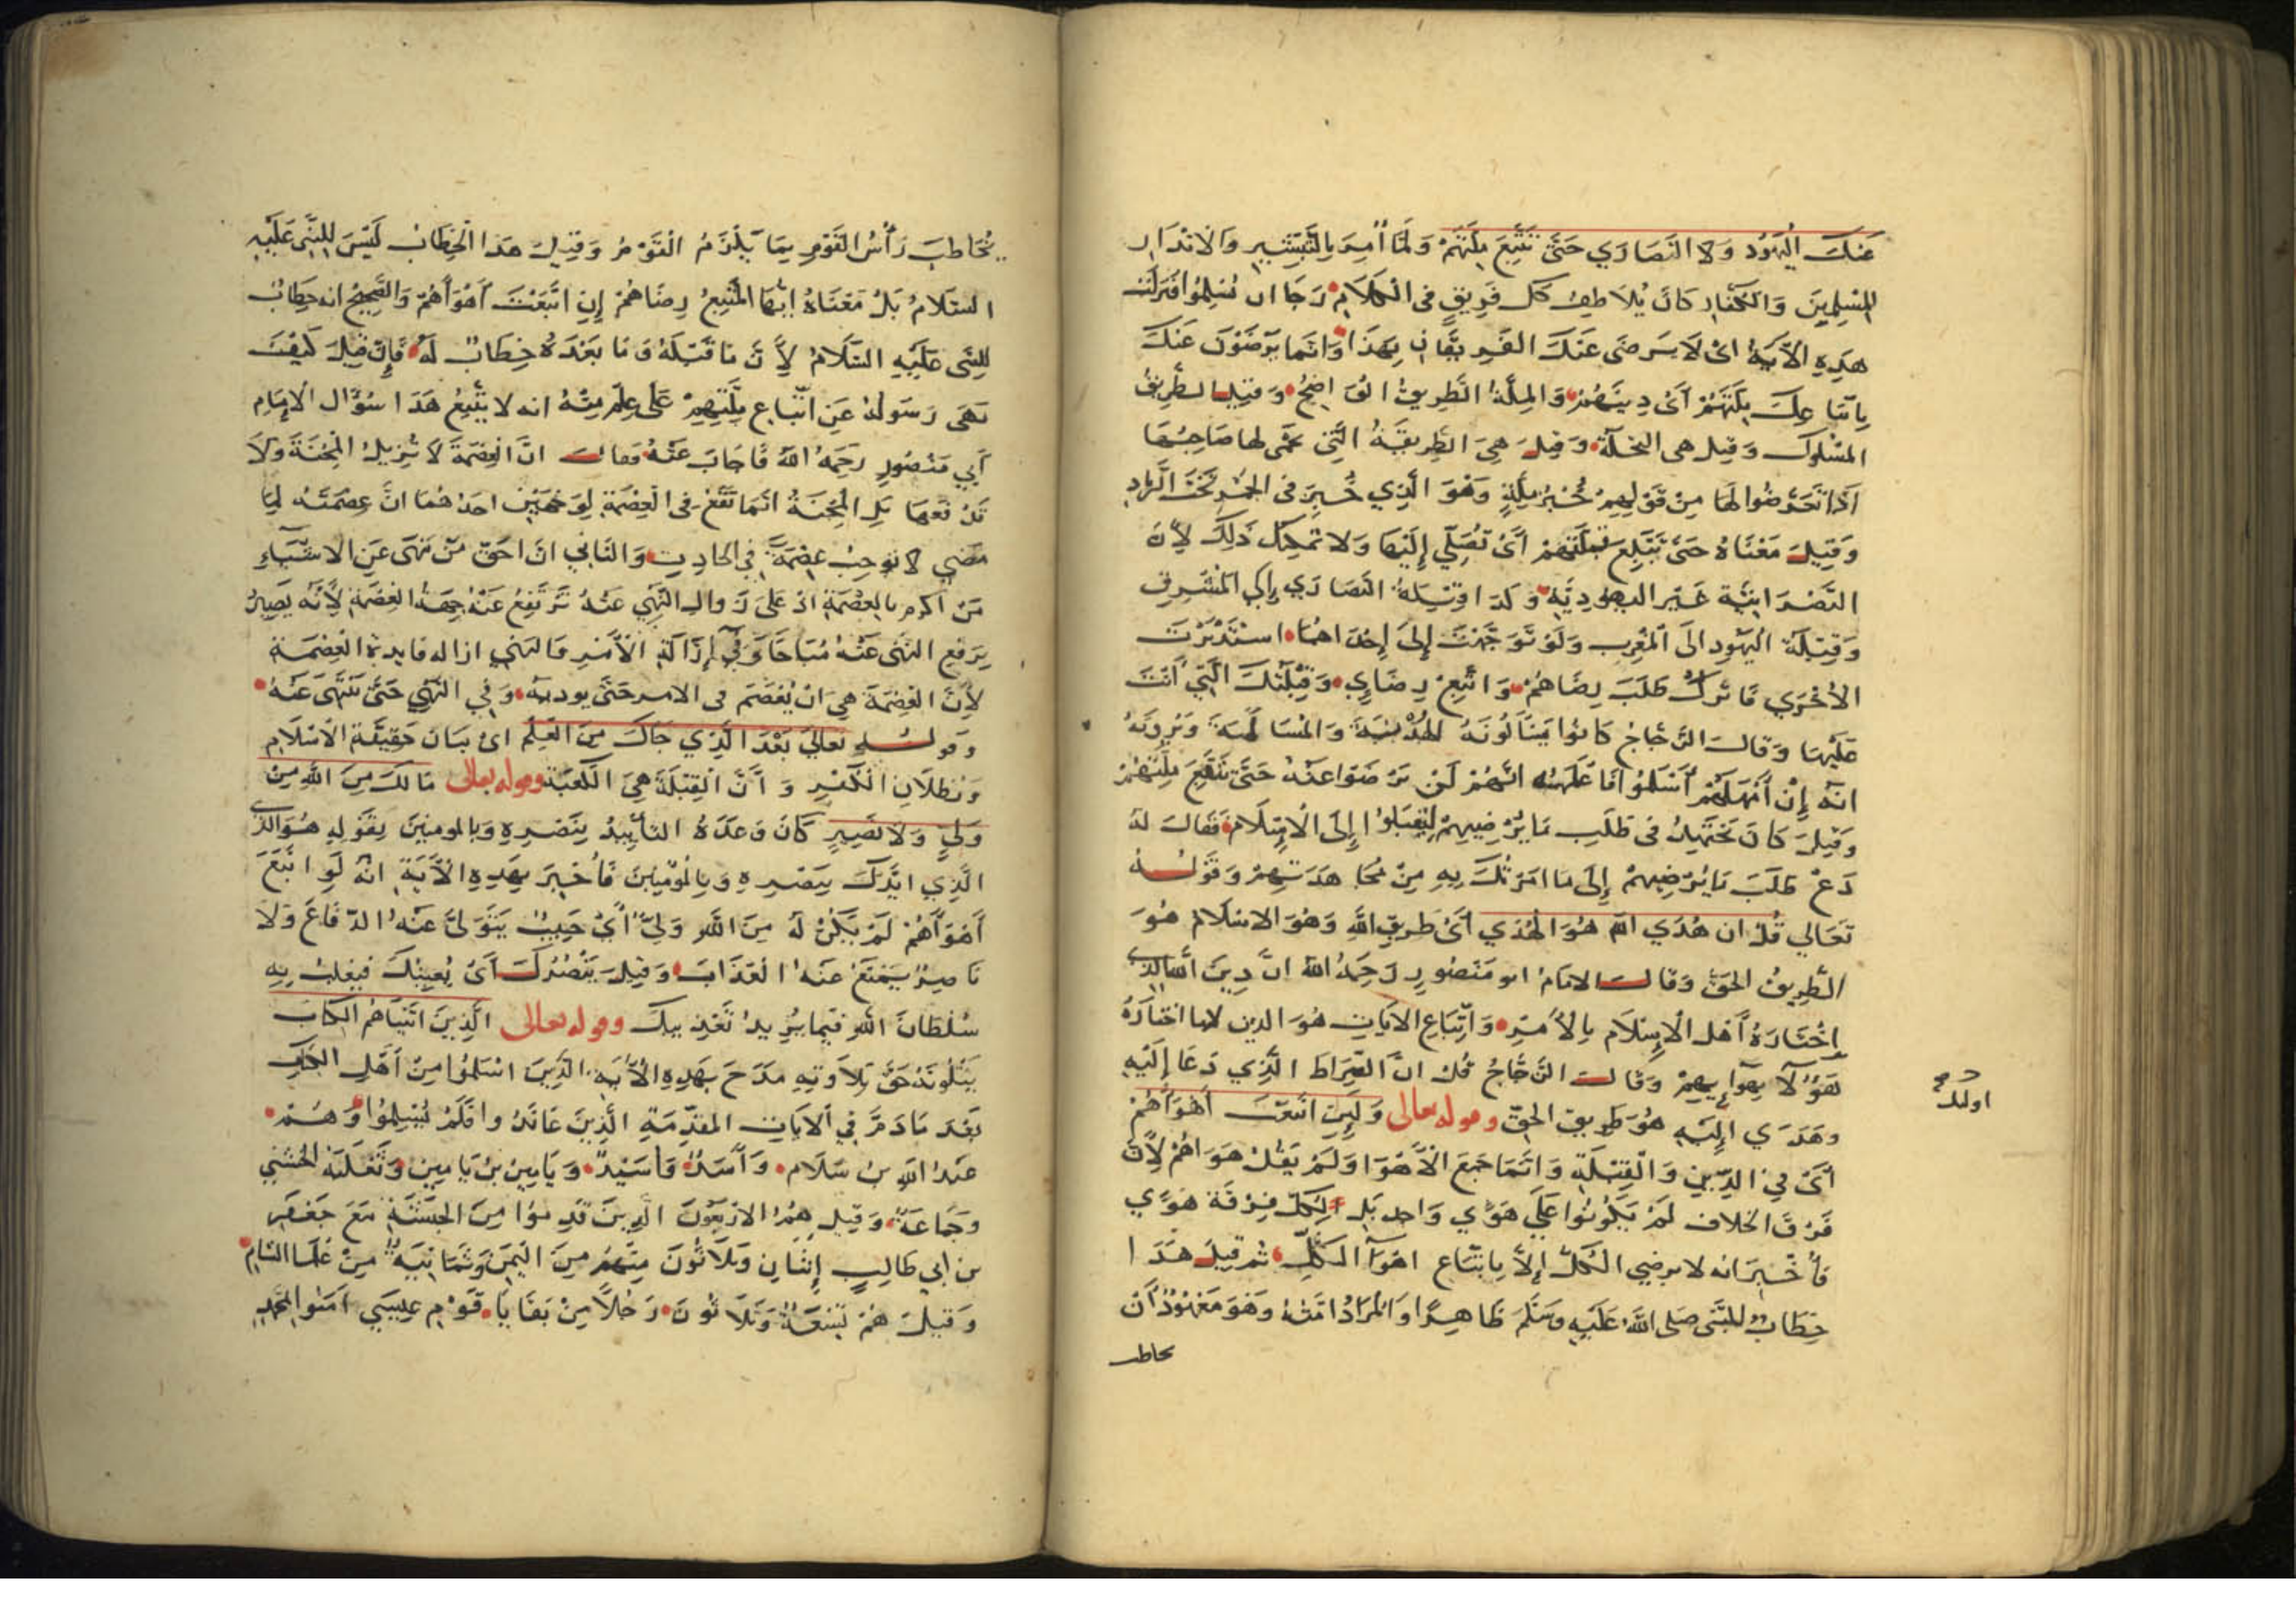 عَنكَ اليَهُود وَلا النَصَارَي حَتَّى تَتَّبِعَ مِلَّتَهُمْ وَلَمَّا أُمِرَ بِالتَّبْشِيرِ وَالانْذَارِ
للمسْلِمِينَ وَالكُفَّارِ كانَ يُلَاطِفُ كل فَرِيقٍ في الْكَلَامِ رَجَا ان يُسْلِمُوا فَنَزَلَتْ
هذِهِ الآيَةُ اىْ لَا يَرضَى عَنكَ الفَرِيقَانِ بِهَذَا وَانما يَرْضَوْنَ عَنكَ
بِاتّبَاعِكَ مِلَّتَهُمْ أىْ دِينَهُمْ وَالمِلَّةُ الطَّرِيقُ الوَاضِحُ وَقِيلَ الطَّرِيقُ
المسْلُوكُ وَقيل هى النحْلَة وَقِيلَ هِىَ الطَّرِيقَةُ الَّتِي
اذا تَعَرَّضُوا لهَا مِنْ قَوْلِهِمْ خُبْزُ مَلَّةٍ وَهُوَ الَّذِي خُبِزَ فى الجَمْرِ تَحْتَ الرَّمادِ
وَقِيلَ مَعْنَاهُ حَتَّى تَتَّبِعَ قبلَتَهُمْ أىْ تُصَلِّي إِلَيْهَا وَلا تمكنكَ ذَلِكَ لأنَّ
النَّصْرَانِيَّة غَيْر اليهودِيَّةِ وَكَذَا قِبْلَةُ النَّصَارَي إِلى المَشْرِقِ
وَقِبْلَة اليَهُودِ الَى المَغْرِبِ وَلَوْ تَوَجَّهْتَ إِلَى إِحْدَاهُمَا اسْتَدْبَرْتَ
الأُخْرَي فَاتْرُكْ طَلَبَ رِضَاهُمْ وَاتَّبِعْ رِضَايِ وَقِبْلَتَكَ الَّتِي أَنْتَ
عَلَيْهَا وَقالَ الزَّجَّاجُ كَانُوا يَسْأَلُونَهُ الهُدْنَةَ وَالمُسَالَمَةَ وَيُرُونَهُ
انَّهُ إِنْ أَمْهَلَهُمْ أَسْلَمُوا فَأعلَمَهُ انَّهُمْ لَنْ يَرْضَوْا عَنْهُ حَتَّى يَتَّبِعَ مِلَّتَهُمْ
وَقِيلَ كَانَ يَجْتَهِدُ فى طَلَبِ مَا يُرْضِيهِمْ لِيُقْبِلُوا إِلَى الْإِسْلَامِ فَقَالَ لَهُ
دَعْ طَلَبَ مَا يُرْضِيهِمْ إِلَى مَا امَرْتُكَ بِهِ مِنْ مُجَاهَدَتِهِمْ وَقَوْلُهُ
تَعَالِي قُلْ ان هُدَي الله هُوَ الهُدَي أَىْ طَرِيقَ اللهِ وَهُوَ الاسْلَام هُوَ
الطَّرِيقُ الحَقُّ وَقالَ الامَامُ ابو مَنْصُورٍ رَحِمَهُ اللهُ انَّ دِينَ اللهِ الَّذِي
اخْتَارَهُ أَهْلُ الْإِسْلَامِ بِالأَمْرِ وَاتّبَاعِ الآيَاتِ هُوَ الدين لا ما اختَارَهُ
هَؤُلَآ بِهَوَايهِمْ وَقالَ الزَّجَّاجُ قُلْ انَّ الصِّرَاطَ الَّذِي دَعَا إِلَيْهِ
وهَدَي إِلَيْهِ هُوَ طَرِيق الحقّ وقوله تعالى وَلَئِنِ اتبَعْتَ أَهْوَآهُمْ
أىْ فِي الدِّينِ وَالْقِبْلَةِ وَانَّمَا جَمَعَ الْأَهْوَا وَلَمْ يَقُلْ هَوَاهُمْ لأنَّ
فِرَقَ الخلافِ لَمْ يَكُونُوا عَلَي هَوًي وَاحِدٍ بَلْ لِكُلِّ فِرْقَة هَوًي
فأَخْبَرَ انه لا يرضي الكُلّ إِلَّا بِاتّبَاعِ اهْوَآ الكُلِّ ثم قِيلَ هَذَا
خِطَابٌ للنَّبِي صَلى اللهُ عَلَيْهِ وَسَلَّمَ ظَاهِرًا وَالمُرَادُ امَّتُهُ وَهُوَ مَعْهُودٌ أَنْ
يخاطب
اوليك
يُخَاطِبَ رَأْسَ القَوْمِ بِمَا يَلْزَمُ الْقَوْمَ وَقِيلَ هَذَا الْخِطَابُ لَيْسَ لِلنَّبِي عَلَيْهِ
السَّلَامُ بَلْ مَعْنَاهُ ايُّهَا المُتَّبِعُ رِضَاهُمْ إِنِ اتَّبَعْتَ أَهْوَآهُمْ وَالصَّحِيحُ انه خِطَابٌ
لِلنَّبِي عَلَيْهِ السَّلَامُ لأَنَّ مَا قَبْلَهُ وَمَا بَعْدَهُ خِطَابٌ لَهُ فَإِنْ قِيلَ كَيْفَ
نَهَى رَسُولَهُ عَنِ اتّبَاعِ مِلَّتِهِمْ عَلَى عِلْمٍ مِنْهُ انه لا يَتَّبِعُ هَذَا سُؤَالُ الإِمَامِ
أَبِي مَنْصُورٍ رَحِمَهُ اللهُ فَاجَابَ عَنْهُ وقالَ انَّ العِصْمَةَ لَا تُزِيلُ المِحْنَةَ وَلَا
تَدْفَعُهَا بَلِ المِحْنَةُ انّمَا تَقَعُ فى العِصْمَةِ لِوَجْهَيْنِ احَدُهُمَا انَّ عِصْمَتَهُ لِمَا
مَضَي لَا تُوجِبُ عِصْمَةً فِي الحَادِثِ وَالثَّانِي انَّ احَقَّ مَنْ نَهَى عَنِ الاشْيَاءِ
مَنْ اكْرِمَ بِالعِصْمَةِ اذْ عَلَى زَوالِ النَّهْيِ عَنْهُ تَرْتَفِعُ عَنْهُ جِهَةُ العِصْمَةِ لأَنَّه يَصِيرُ
بِرَفْعِ النَّهْي عَنْهُ مُبَاحًا وَفِي إِزَالَةِ الأَمْرِ وَالنَّهْي ازاله فايدة العِصْمَةِ
لأَنَّ العِصْمَةَ هِيَ انْ يُعْصَمَ فى الامر حَتَّى يودِيهُ وَفِي النَّهْيِ حَتَّى يَنْتَهِيَ عَنْهُ
وَقَولُهُ تعَالَى بَعْدَ الَّذِي جَاكَ مِنَ العِلْمِ اىْ بَيَانِ حَقِيقَةِ الاسْلَامِ
وَبُطْلَانِ الكُفْرِ وَأَنَّ الْقِبْلَةَ هِيَ الكَعْبَة وقوله تعالى مَا لَكَ مِنَ اللهِ مِنْ
وَلِيٍّ وَلَا نَصِيرٍ كَانَ وَعَدَهُ التَأْيِيدَ بِنَصْرِهِ وَبِالمومنِينَ بِقَوْلِهِ هُوَ الَّذِي
الَّذِي ايَّدَكَ بِنَصْرِهِ وَبِالمُوْمِنِينَ فَأُخْبِرَ بِهَذِهِ الآيَةِ انَّهُ لَوِ اتَّبَعَ
أَهْوَآهُمْ لَمْ يَكُنْ لَهُ مِنَ اللهِ وَلِيٌّ أيْ حَبِيبٌ يَتَوَلَّى عَنْهُ الدّفَاعَ وَلَا
نَاصِرٌ يَمْنَعُ عَنْهُ العَذَابَ وَقِيلَ يَنْصُرُكَ أَىْ يُعِينُكَ فيغلبُ بِهِ
سُلْطَانَ اللهِ فِيمَا يُرِيدُ تَعْذِيبَكَ وقوله تعالى الَّذِينَ اتَيْنَاهُمُ الكِتَابَ
يَتْلُونَهُ حَقَّ تِلَاوَتِهِ مَدَحَ بِهَذِهِ الآيَةِ الَّذِينَ اسْلَمُوا مِنْ أَهْلِ الكِتَابِ
بَعْدَ مَا ذَمَّ فِي الآيَاتِ المقَدِّمَةِ الَّذِينَ عَانَدُوا فَلَمْ يُسْلِمُوا وَهُمْ
عَبْدُ اللهِ بنُ سَلَام وَأَسَدٌ وَأسَيْدٌ وَيَامِينُ بْنُ يَامِين وَثَعْلَبَة
وَجَمَاعَةٌ وَقِيلَ هُمُ الارْبَعُونَ الَّذِينَ قَدِمُوا مِنَ الحَبَشَةِ مَعَ جَعْفَرِ
بنِ ابي طَالِبٍ إِثْنَانِ وَثَلَاثُونَ مِنْهُمْ مِنَ اليَمَنِ وَثَمَانِيَةٌ مِنْ عُلَمَا الشَّامِ
وَقيلَ هُمْ تِسْعَةٌ وَثَلَاثُونَ رَجُلاً مِنْ بَقَايَا قَوْمِ عِيسَي امَنُوا بمحَمَّدٍ